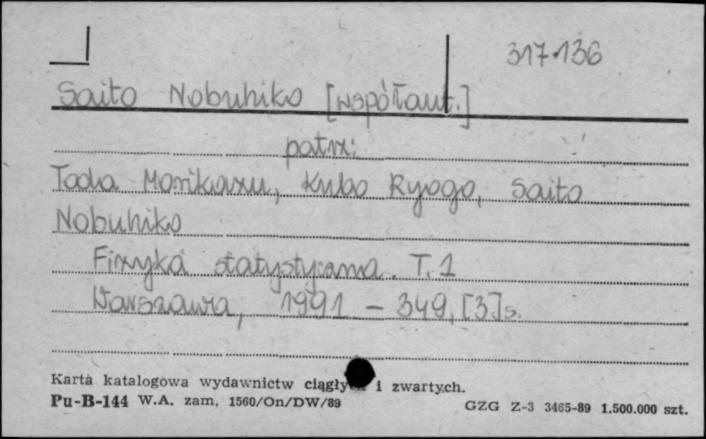 317136
Saito Nobuhiko [współaut.]
patrz:
Toda Morikazu, Kubo Ryogo, Saito
Nobuhiko
Fizyka statystyczna. T. 1
Warszawa, 1991 – 349, [3] s.
Karta katalogowa wydawnictw ciągłych i zwartych.
Pu-B-144 W.A. zam. 1560/On/DW/89 GZG Z-3 3465-89 1.500.000 szt.